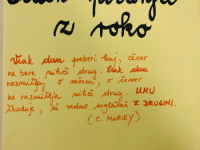 z roko
Vsak dan preberi kaj, česar
ne bere nihče drug. Vsak dan
razmišljaj o nečem, o čemer
ne razmišlja nihče drug. UMU
škoduje, si vedno
Z DRUGIMI.
(C. MORLEY)